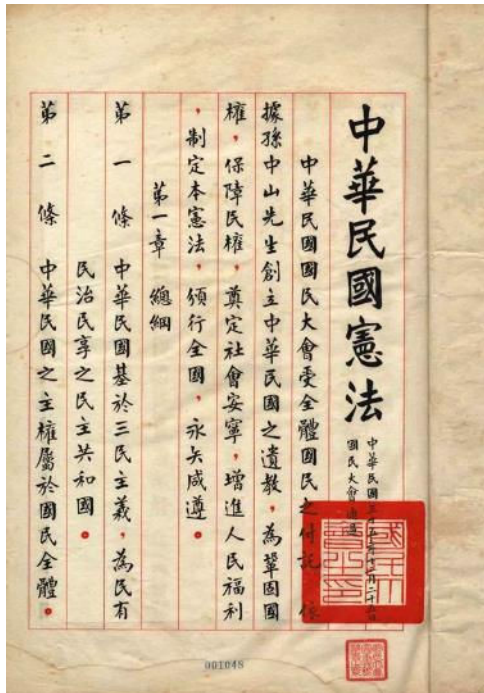 中華民國憲法
中華民國三十五年十二月二十五日
國民大會通過
中華民國國民大會受全體國民之付託，依
據孫中山先生創立中華民國之遺教，為鞏固國
權，保障民權，奠定社會安寧，增進人民福利
，制定本憲法，頒行全國，永矢咸遵。
第一章 總綱
第一條 中華民國基於三民主義，為民有
民治民享之民主共和國。
第二條 中華民國之主權屬於國民全體。
國民大
會之印
001048